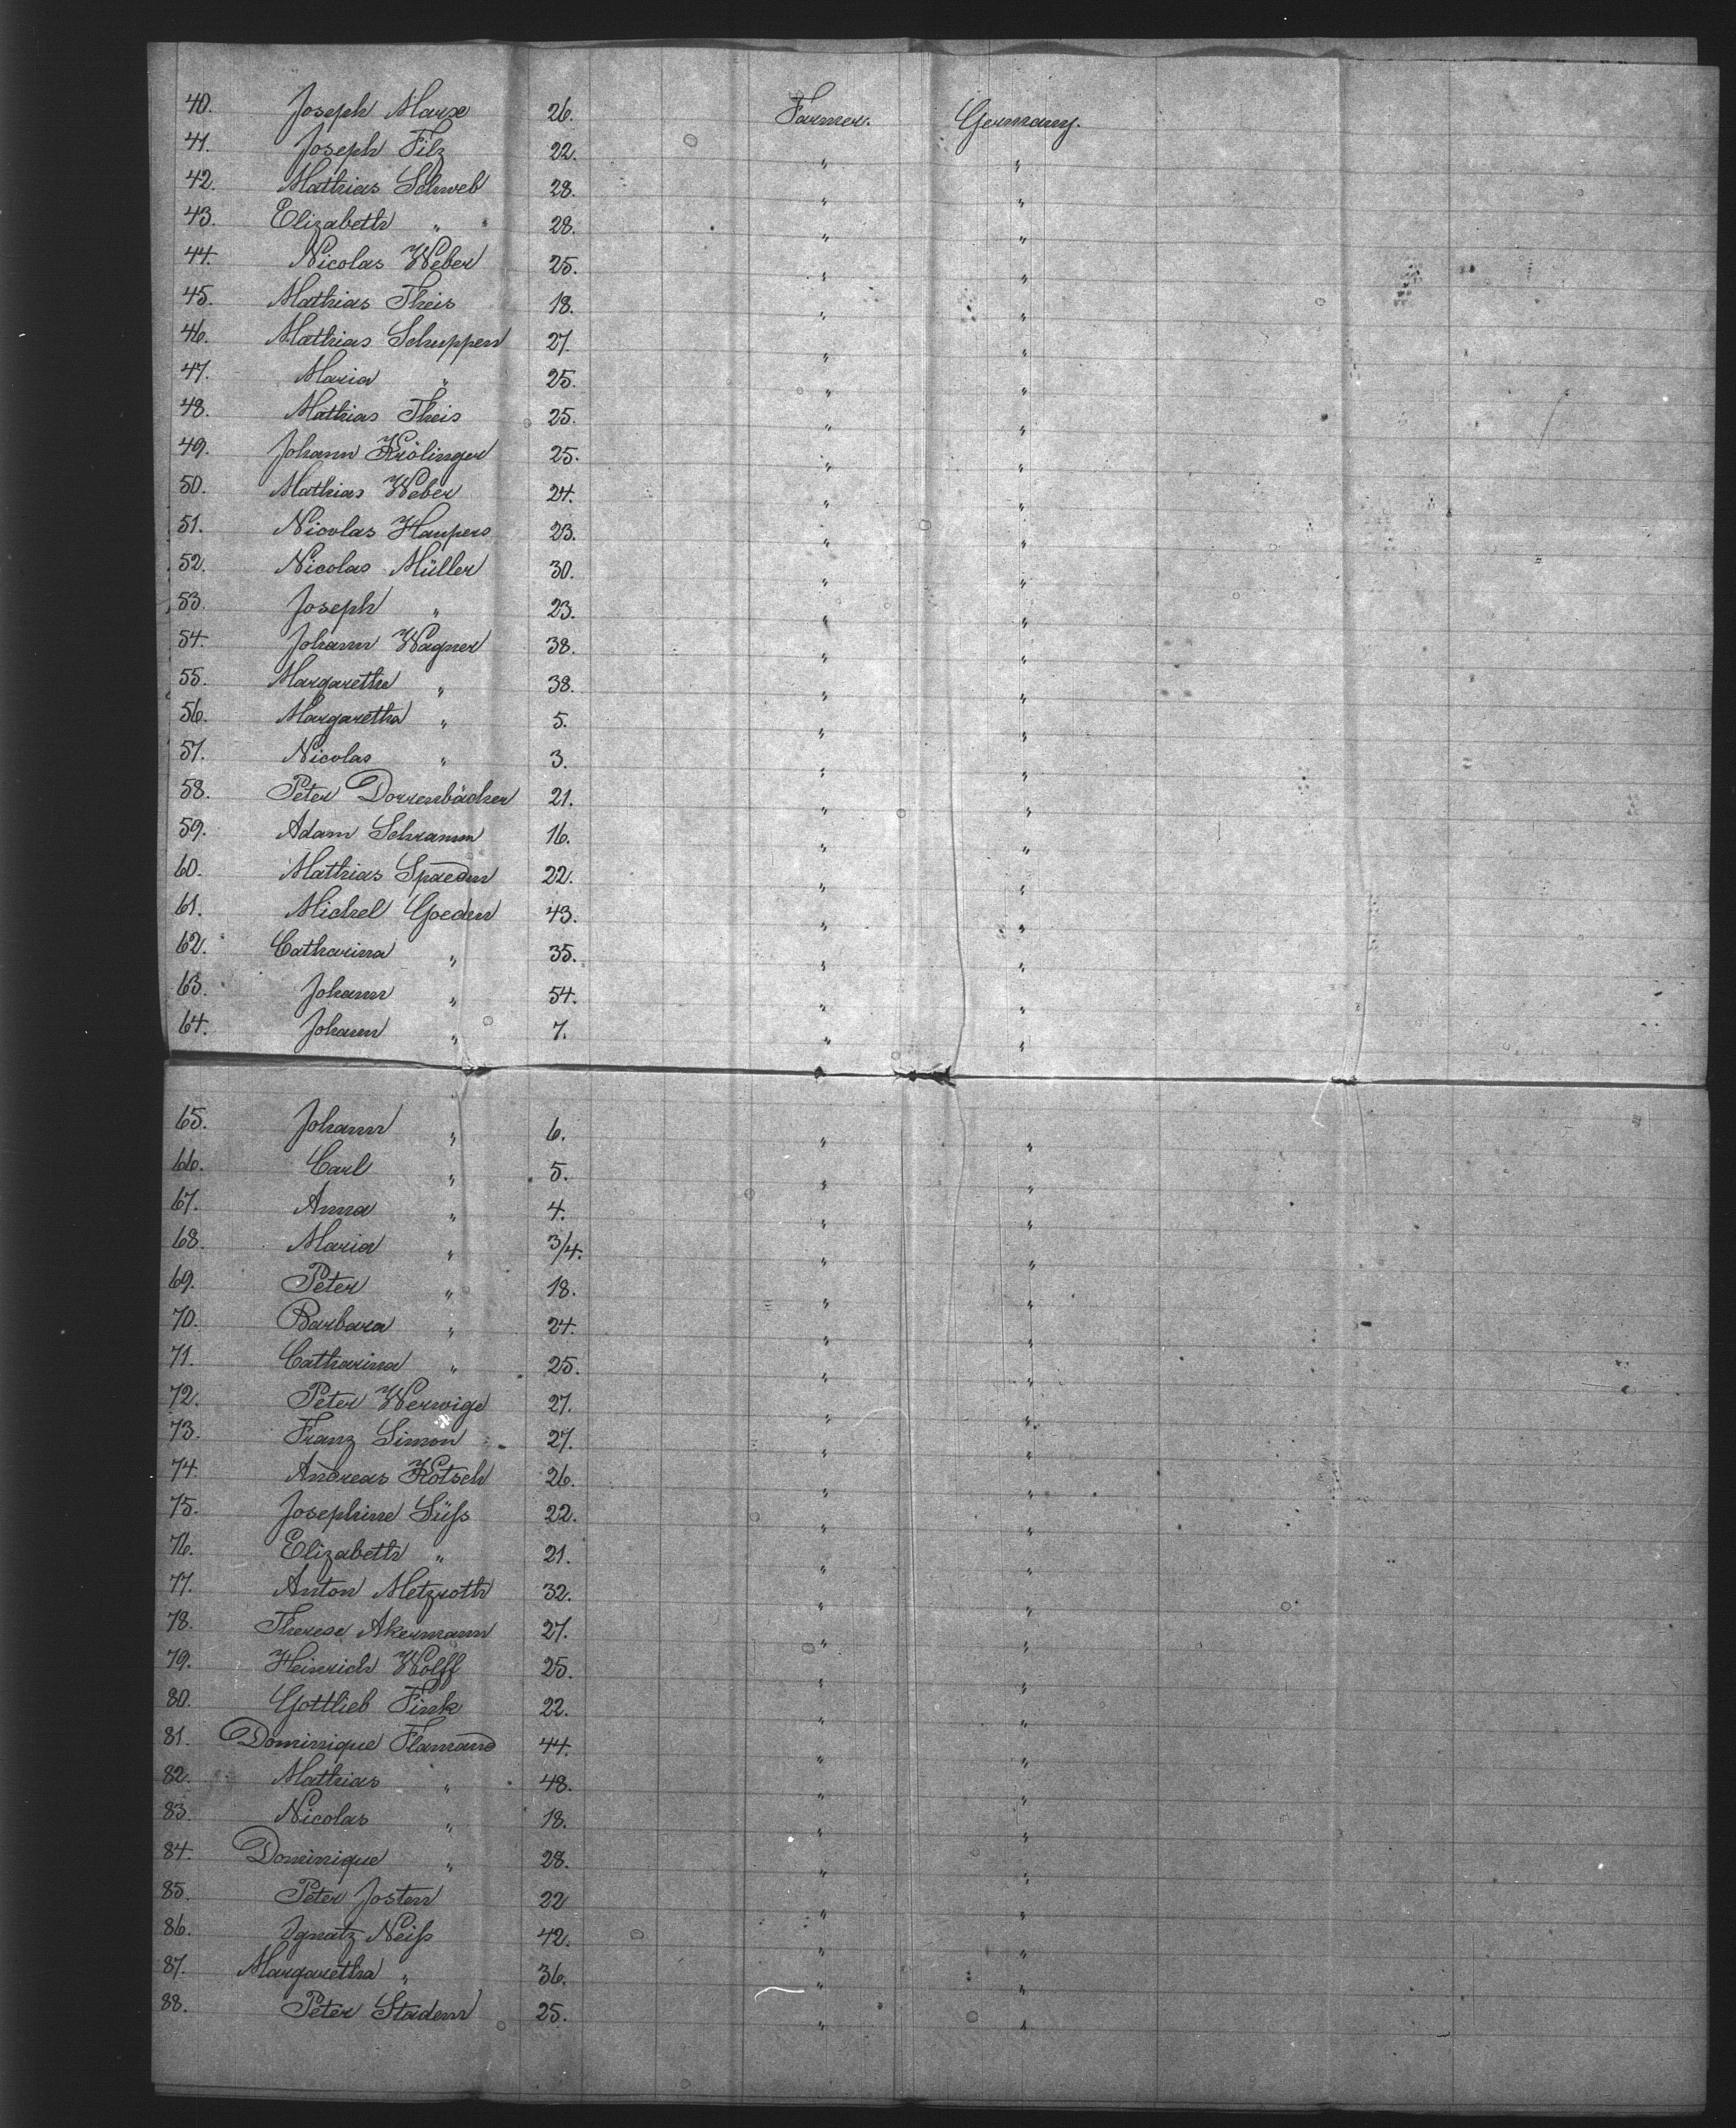 40. Joseph Marx 26. Farmer. Germany.
41. Joseph Filz 22. " "
42. Mathias Schweb 28. " "
43. Elizabeth " 28. " "
44. Nicolas Weber 25. " "
45. Mathias Theis 18. " "
46. Mathias Schuppen 27. " "
47. Maria " 25. " "
48. Mathias Theis 25. " "
49. Johann Krölinger 25. " "
50. Mathias Weber 24. " "
51. Nicolas Haupers 23. " "
52. Nicolas Müller 30. " "
53. Joseph " 23. " "
54. Johann Wagner 38. " "
55. Margarethe " 38. " "
56. Margaretha " 5. " "
57. Nicolas " 3. " "
58. Peter Dorrenbächer 21. " "
59. Adam Schramm 16. " "
60. Mathias Spaedm 22. " "
61. Michel Goeden 43. " "
62. Catharina " 35. " "
63. Johann " 54. " "
64. Johann " 7. " "
65. Johann " 6. " "
66. Carl " 5. " "
67. Anna " 4. " "
68. Maria " 3/4. " "
69. Peter " 18. " "
70. Barbara " 24. " "
71. Catharina " 25. " "
72. Peter Werwige 27. " "
73. Franz Simon 27. " "
74. Andreas Kotsch 26. " "
75. Josephine Süſs 22. " "
76. Elizabeth " 21. " "
77. Anton Metzroth 32. " "
78. Therese Akermann 27. " "
79. Heinrich Wolff 25. " "
80. Gottlieb Fink 22. " "
81. Dominique Flamand 44. " "
82. Mathias " 48. " "
83. Nicolas " 18. " "
84. Dominique " 28. " "
85. Peter Josten 22 " "
86. Ignatz Neiſs 42. " "
87. Margaretha " 36. " "
88. Peter Staden 25. " "